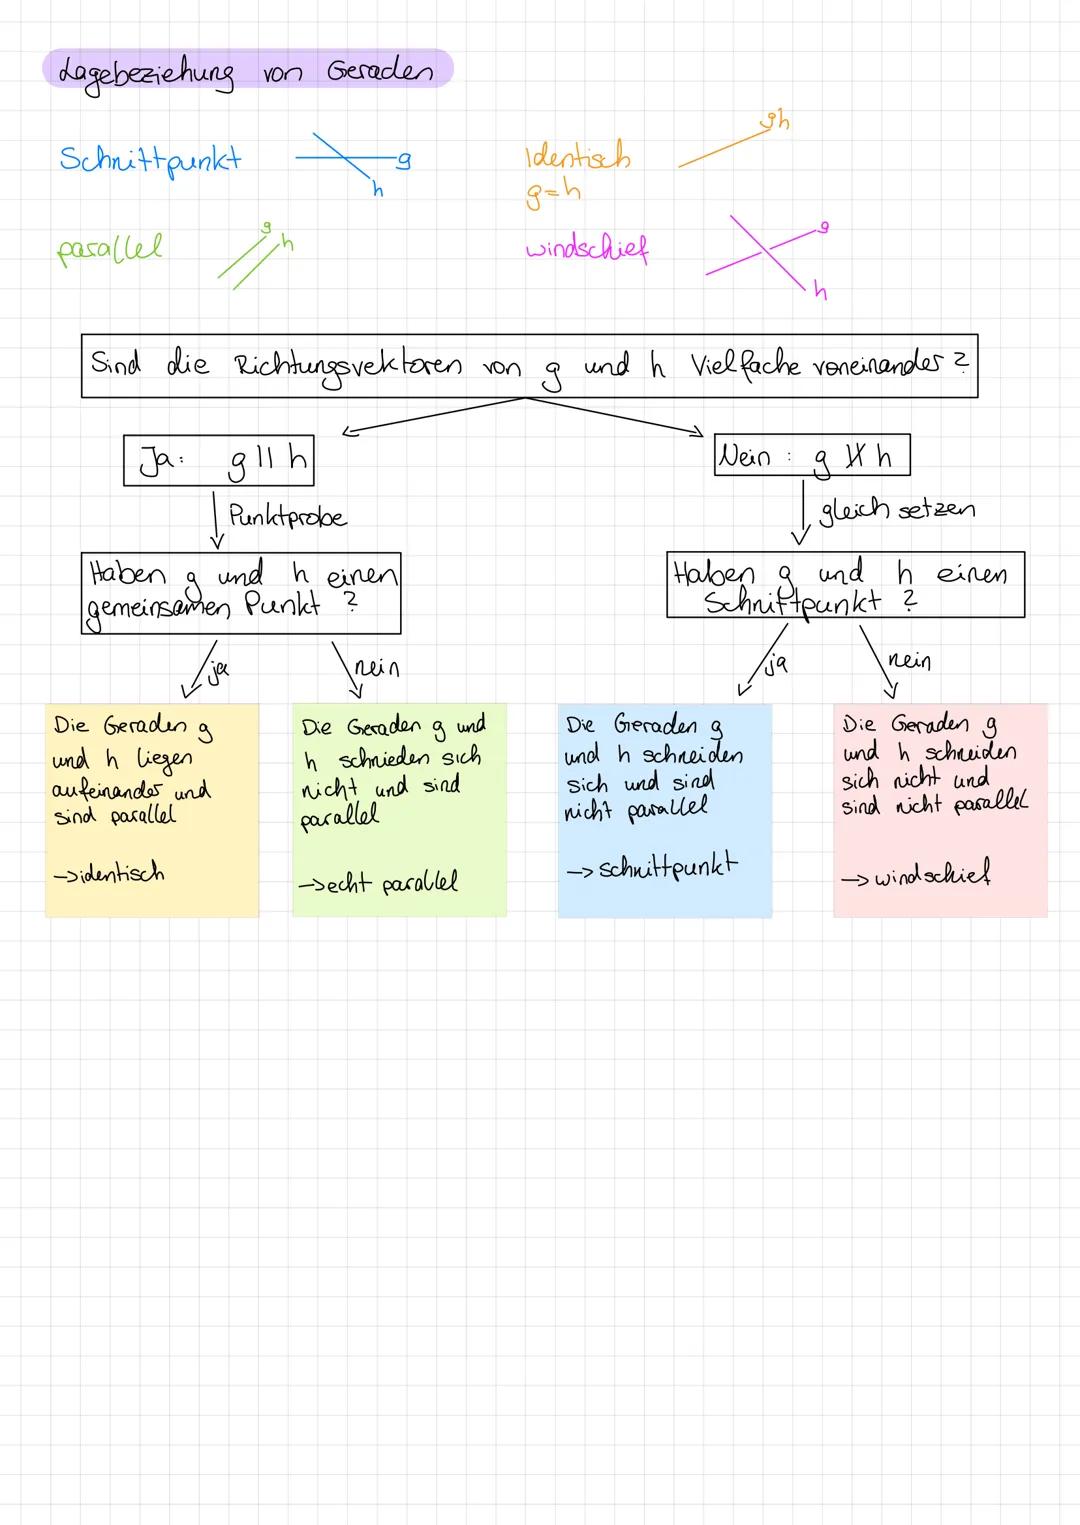 Lagebeziehung von Geraden
Schnittpunkt
g
h
Identisch
g=h
gh
parallel
g
h
windschief
g
h
Sind die Richtungsvektoren von g und h Vielfache voneinander?
Ja: g || h
Nein: g ∦ h
Punktprobe
gleich setzen
Haben g und h einen
gemeinsamen Punkt?
Haben g und h einen
Schnittpunkt?
ja
nein
ja
nein
Die Geraden g
und h liegen
aufeinander und
sind parallel
→identisch
Die Geraden g und
h schnieden sich
nicht und sind
parallel
→echt parallel
Die Geraden g
und h schneiden
sich und sind
nicht parallel
→ schnittpunkt
Die Geraden g
und h schneiden
sich nicht und
sind nicht parallel
→ windschief